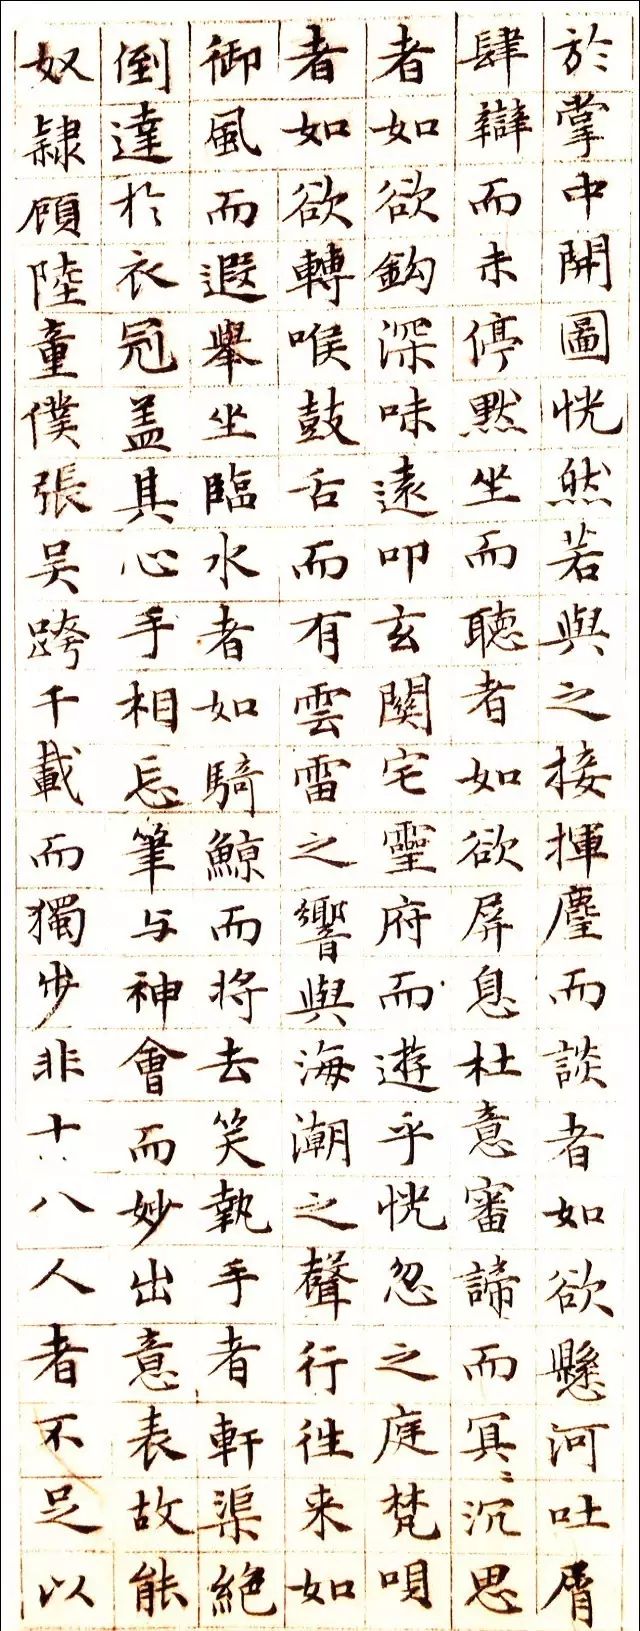 於掌中開圖恍然若與之接揮麈而談者如欲懸河吐屑
肆辯而未停默坐而聽者如欲屏息杜意審諦而冥冥沉思
者如欲鈎深味遠叩玄關宅靈府而遊乎恍忽之庭梵唄
者如欲轉喉鼓舌而有雲雷之響與海潮之聲行往来如
御風而遐舉坐臨水者如騎鯨而将去笑執手者軒渠絕
倒達於衣冠盖其心手相忘筆与神會而妙出意表故能
奴隸顧陸童僕張吴跨千載而獨步非十八人者不足以